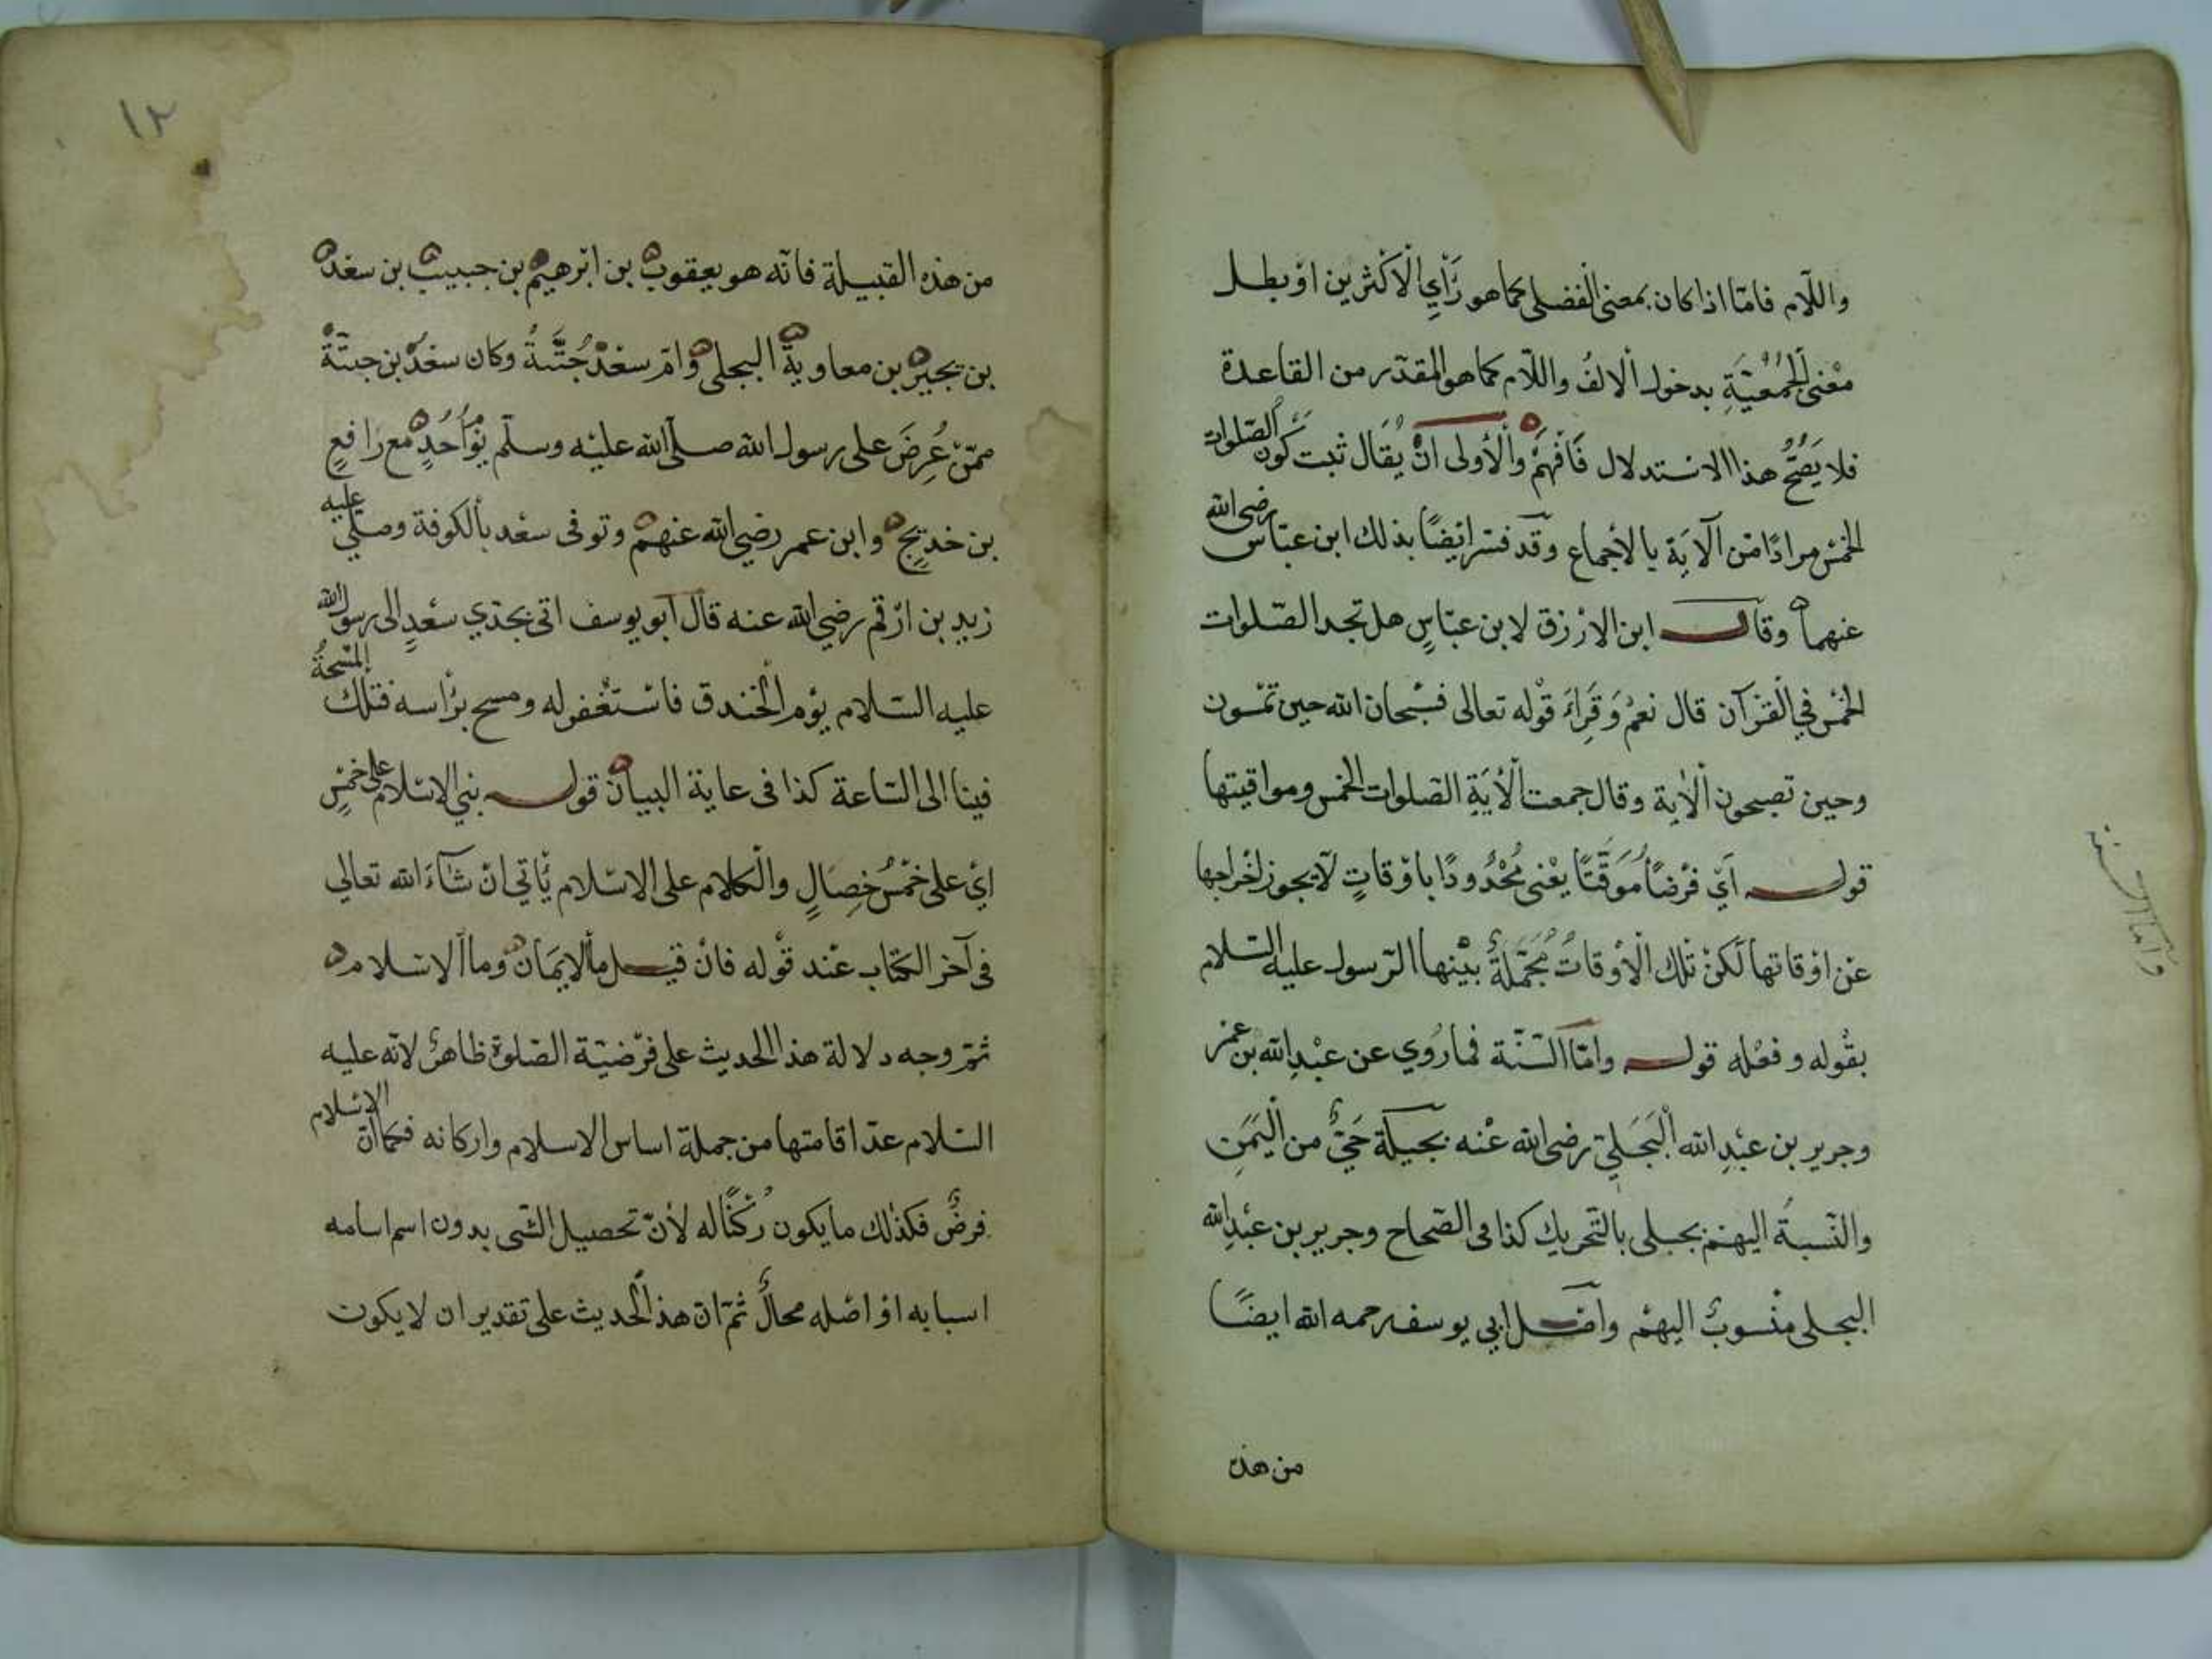 واللّام فامّا اذا كان بمعنى الفضلى كما هو رَأيِ الْاكْثرين اوْ بطل
معْنى الجمْعيّةِ بدخول ألالفُ واللّام كما هو المقدّر من القاعدة
فلا يَصحُّ هذا الاستدلال فَافْهَمْ والْأولى انْ يُقَال ثبت كَوْن الصّلوات
الخمْس مرادًا مّن آلآية يالأجماع وقدْ فسّر ايْضًا بذلك ابن عبّاس رضي الله
عنهما وقال ابن الازْرق لابن عبّاسٍ هل تجد الصّلوات
الخمْس في الْقرْآن قال نعمْ وَقَرَاءَ قوْله تعالى فسُبْحان الله حين تمْسون
وحين تصبحون ألْآية وقال جمعت ألْآيَةِ الصّلوات الخمْس ومواقيتها
قوله اَيْ فرْضًا مُوَقّتًا يعْني محْدُودًا باوْقاتٍ لّا يجوز اخْراجها
عن اوْقاتها لكنْ تلك الْأوْقاتُ مُجْمَلَةٌ بيْنها الرّسول عليه السّلام
بقوله وفعْله قوله وامّا السّنّة فما رُوي عن عبْدِ الله بن عمر
وجرير بن عبْدِ الله الْبَجَليّ رضى الله عنْه بجيلَة حَيٌّ من الْيَمَنِ
والنّسبةُ اليهمْ بجلى بالتّحريك كذا فى الصّحاح وجرير بن عبْدِ الله
البجلى منْسوبٌ اليهمْ وأصْل ابي يوسف رحمه الله ايضًا
من هذه
وامّا السنة
١٢
من هذه القبيلة فانّه هو يعقوب بن ابْرهيم بن حبيب بن سعْد
بن بجيْر بن معاوية البجلى وَامّ سعْد حُبْتَةُ وكان سعْدُ بن حبتَةَ
ممّنْ عُرِضَ على رسول الله صلّى الله عليْه وسلّم يوْم أُحُدٍ مع رَافعٍ
بن خديجٍ وابن عمر رضي الله عنهمْ وتوفى سعْد بألكوفة وصلّى عليه
زيد بن ارْقم رضي الله عنه قال ابو يوسف اتى بجدّي سعْدٍ إلى رسول الله
عليه السّلام يوْم الْخندق فاسْتغْفر له ومسح برأسه فتلك المسْحةُ
فينا الى السّاعة كذا فى عاية البيان قوله بني الاسْلام على خمْسٍ
ايْ على خمْس خِصَالٍ والْكلام على الاسْلام يأتي انْ شآءَ الله تعالي
فى آخر الكتاب عنْد قوْله فانْ قيل ما ألايمَان وما ألاسلام
ثمّ وجه دلالة هذا الحديث على فرْضيّة الصّلوة ظاهرٌ لانّه عليه
السّلام عدّ اقامتها من جملة اساس الاسلام واركانه فكما انّ الاسْلام
فرضٌ فكذلك ما يكون رُكْنًا له لأنّ تحصيل الشّى بدون اسم اسامه
اسبابه اوْ اصْله محالٌ ثمّ انّ هذا الْحديث على تقدير ان لا يكون